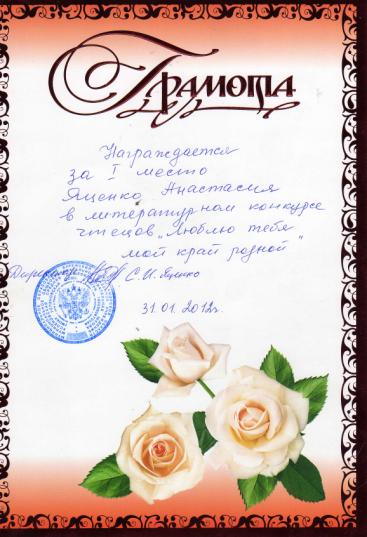 Грамота
Награждается
за I место
Ященко Анастасия
в литературном конкурсе
чтецов „Люблю тебя
мой край родной"
Директор С.И.
31.01.2012г.